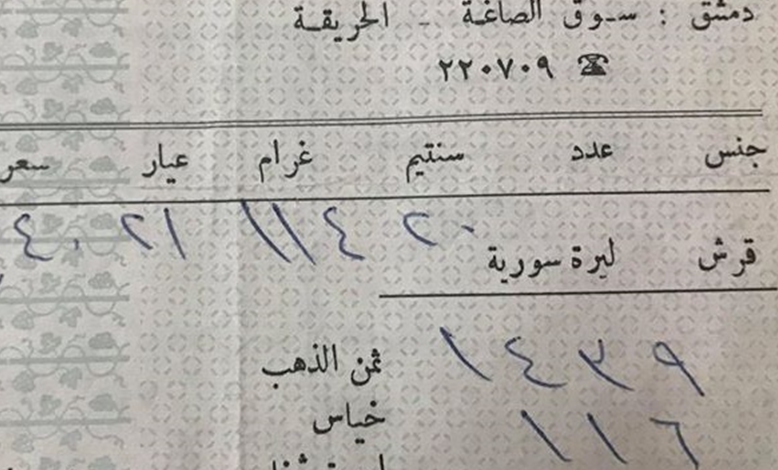 دمشق : سوق الصاغة - الحريقة
☎ ٢٢٠٧٠٩
جنس عدد سنتيم غرام عيار سعر
٢٠ ١١٤ ٢١ ٤٠
قرش ليرة سورية
١٤٣٩ ثمن الذهب
١١٦ خياس